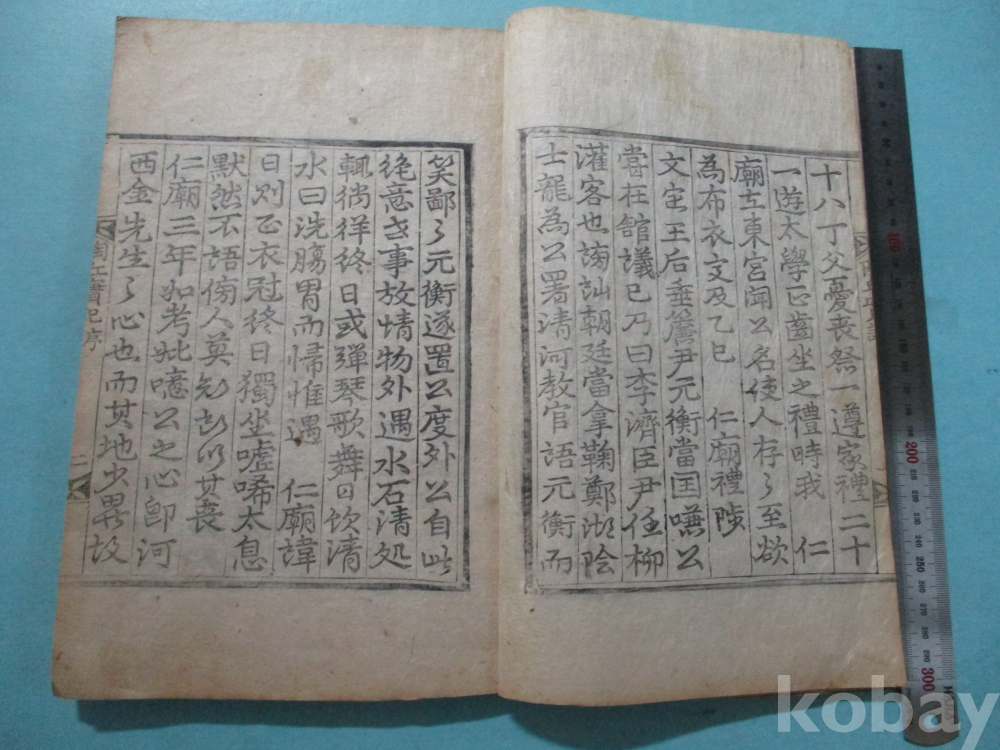 十八丁父憂喪祭一遵家禮二十
一遊太學正齒坐之禮時我 仁
廟在東宮聞公名使人存之至欲
為布衣交及乙巳 仁廟禮陟
文定王后垂簾尹元衡當国嗛公
嘗在舘議己乃曰李濟臣尹任柳
灌客也謗訕朝廷當拿鞠鄭湖陰
士龍為公署清河教官語元衡而
笑鄙之元衡遂置公度外公自此
絶意世事放情物外遇水石清処
輒徜徉終日或彈琴歌舞曰飲清
水曰洗膓胃而帰惟遇 仁廟諱
日則正衣冠終日獨坐嘘唏太息
默然不語傍人莫知其所以其喪
仁廟三年如考妣噫公之心卽河
西金先生之心也而其地少異故
實記序
二
200
300
kobay